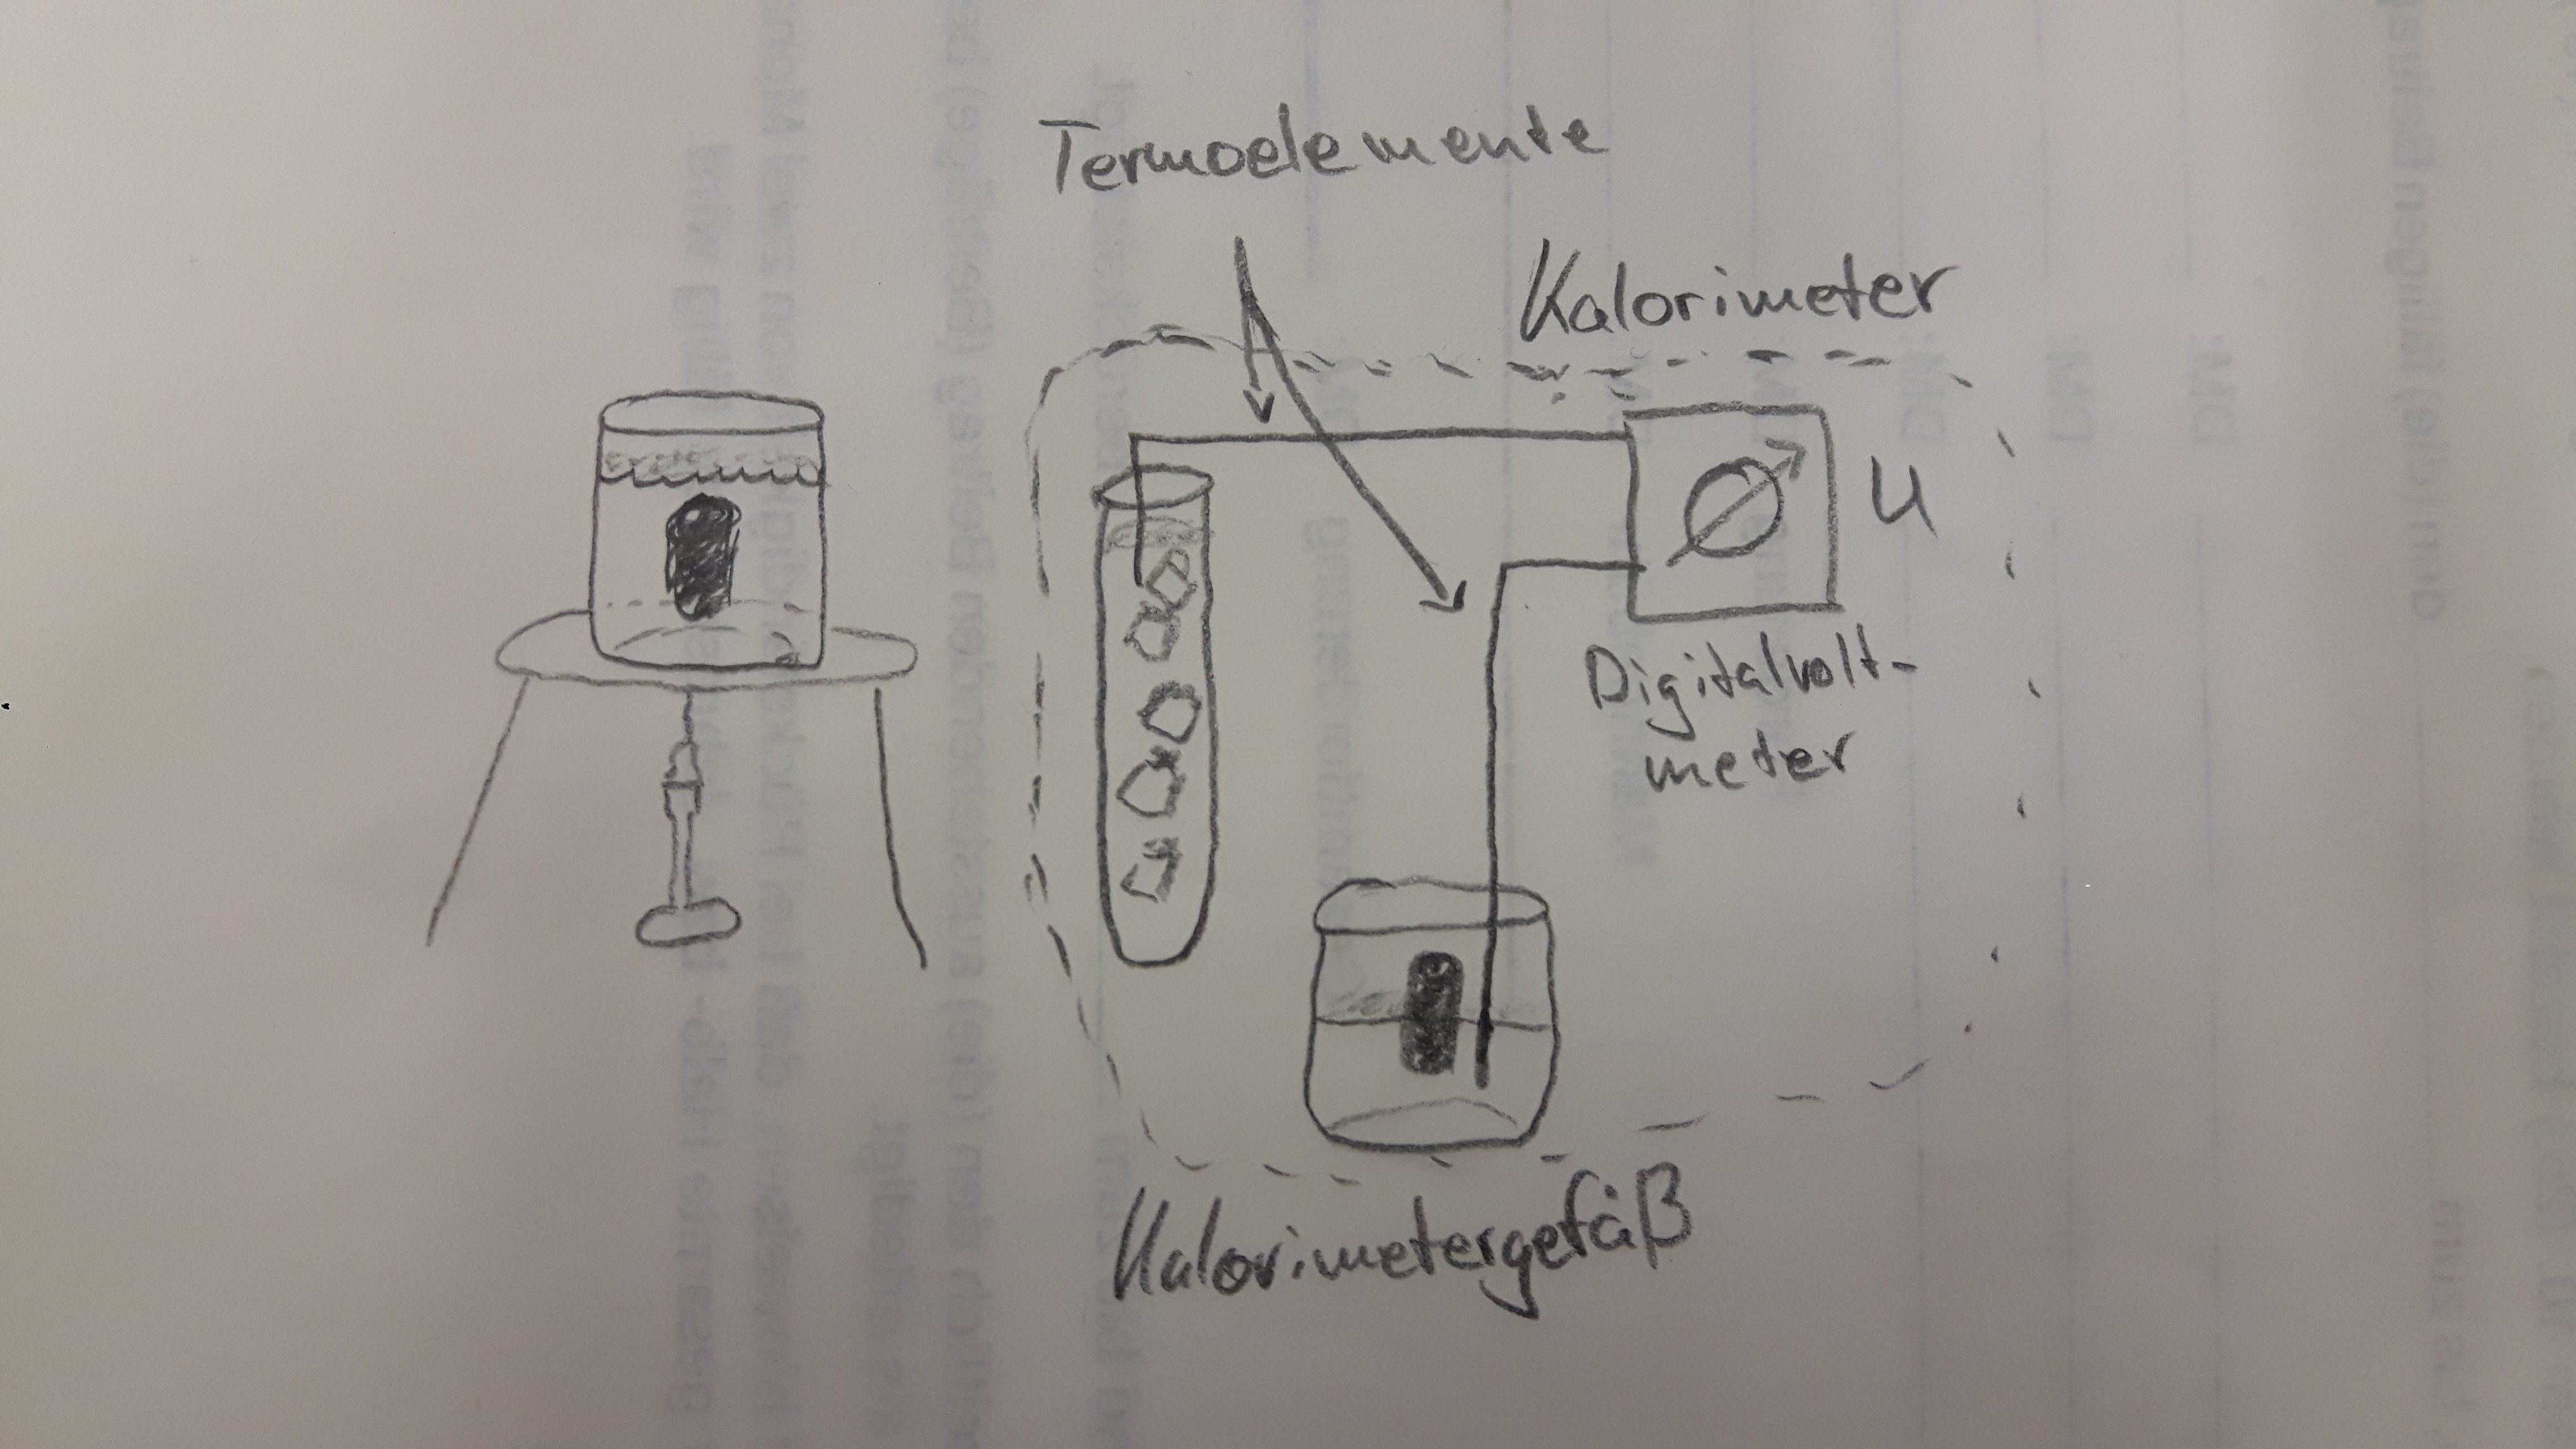 Termoelemente
Kalorimeter
U
Digitalvolt-
meter
Kalorimetergefäß